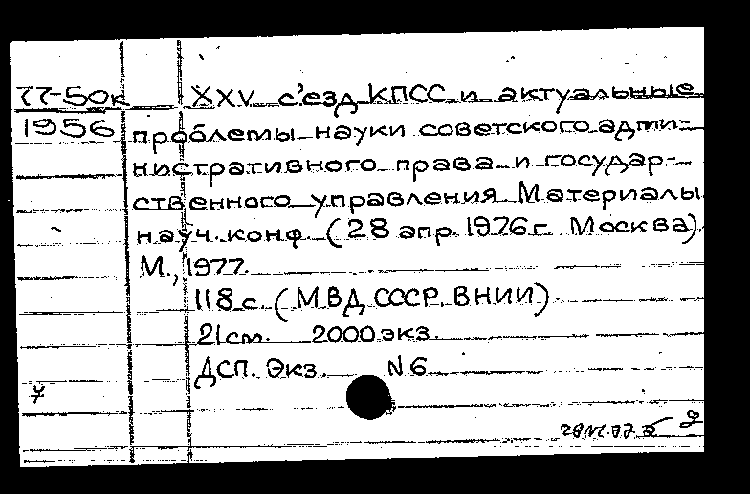 77-50к
1956
XXV с'езд КПСС и актуальные
проблемы науки советского адми-
нистративного права и государ-
ственного управления Материалы
науч. конф. (28 апр. 1976 г. Москва).
М., 1977.
118 с. (МВД СССР. ВНИИ)
21 см. 2000 экз.
ДСП. Экз. N6